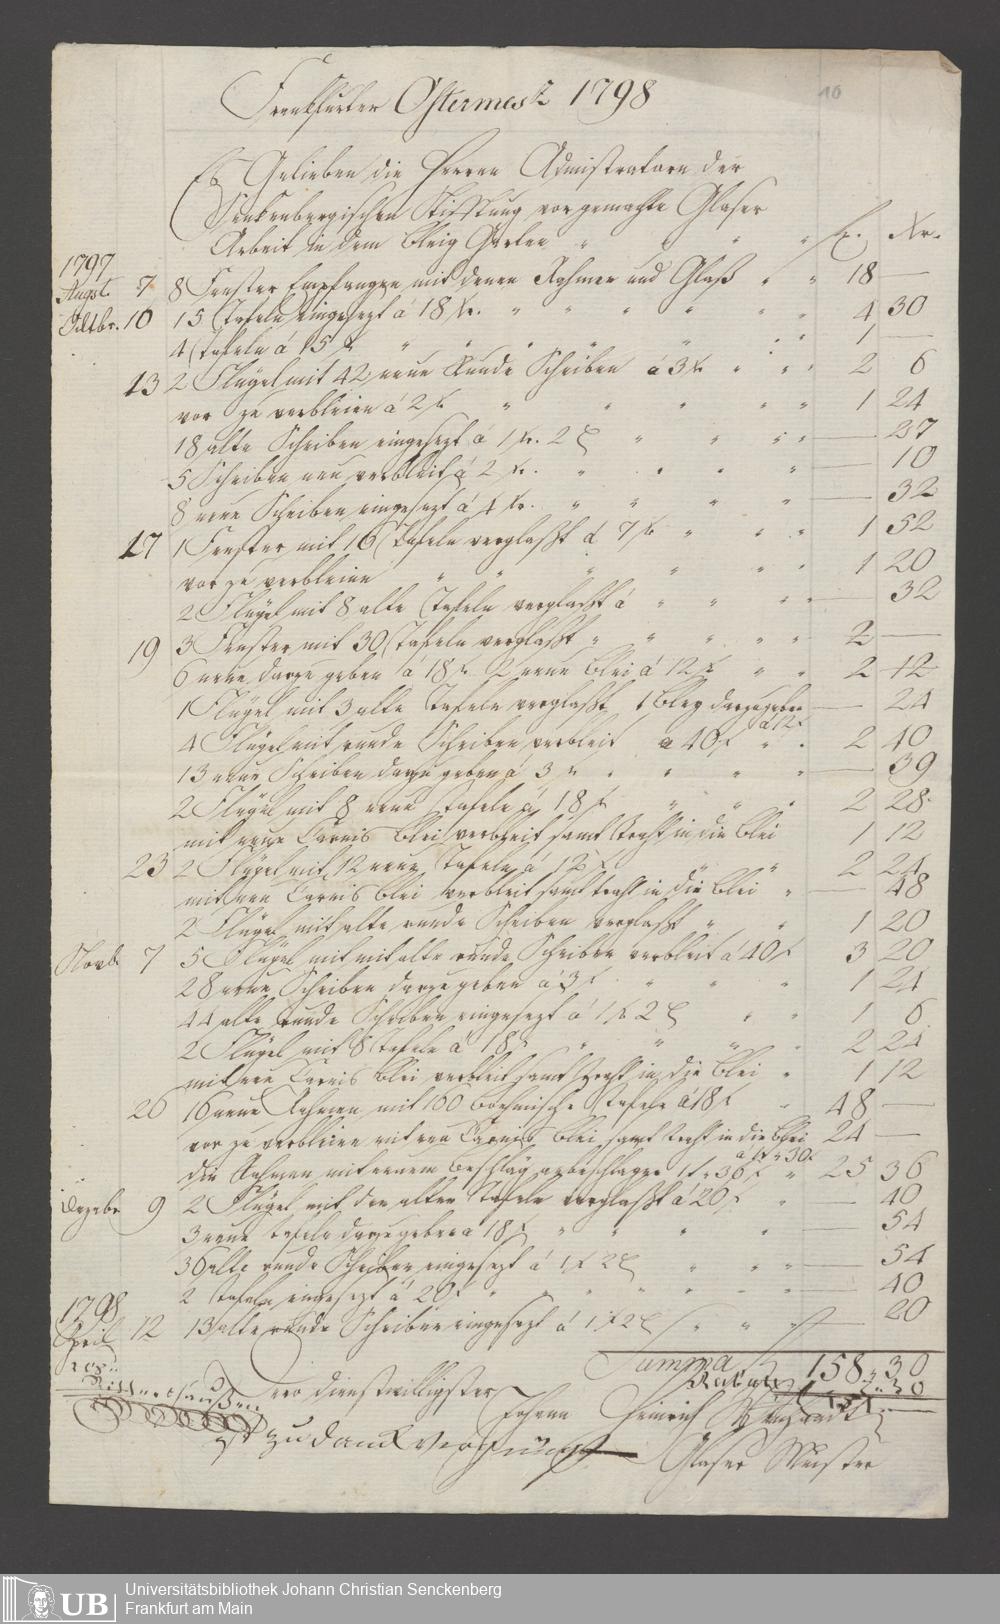 Frankfurter Ostermess 1798
10
Es Gelieben die Herren Admistratorn der
Senkenbergischen Stifftung vor gemachte Glaser
Arbeit in dem Garten " " " fl. Xr.
1797
Augst. 7 8 Fenster Empfangen mit denen Rahmen und Glaß " " 18 —
10 15 Tafeln eingesezt á 18 Xr. " " " " 4 30
4 Tafeln á 15 Xr " " " " 1 —
13 2 Flügel mit 42 neue Runde Scheiben á 3 Xr " " " 2 6
vor zu verbleien á 2 Xr " " " " 1 24
18 alte Scheiben eingesezt á 1 Xr. 2 " " " — 27
5 Scheiben neu verbleit á 2 Xr. " " " — 10
8 neue Scheiben eingesezt á 4 Xr. " " " " — 32
17 1 Fenster mit 16 Tafeln verglaßt á 7 Xr " " " 1 52
vor zu verbleien " " " " " 1 20
2 Flügel mit 8 alte Tafeln verglaßt á " " " — 32
19 3 Fenster mit 30 Tafeln verglaßt " " " " 2 —
6 neue darzu geben á 18 Xr 2 neue Blei á 12 Xr " " 2 12
1 Flügel mit 3 alte Tafeln verglaßt 1 Bley darzugeben — 24
á 12 Xr
4 Flügel mit runde Scheiben verbleit á 40 Xr " " 2 40
13 neue Scheiben darzu geben á 3 Xr " " " — 39
2 Flügel mit 8 neue Tafeln á 18 Xr " " " 2 28
mit neue Carnis Blei verbleit samt in die Blei 1 12
23 2 Flügel mit 12 neue Tafeln á 12 Xr " " 2 24
mit neu Carnis Blei verbleit samt in die Blei " — 48
2 Flügel mit alte runde Scheiben verglaßt " " 1 20
Novb. 7 5 Flügel mit mit alte runde Scheiben verbleit á 40 Xr 3 20
28 neue Scheiben darzu geben á 3 Xr " " " 1 24
44 alte runde Scheiben eingesezt á 1 Xr 2 " " 1 6
2 Flügel mit 8 Tafeln á 18 Xr " " " " 2 24
mit neu Carnis Blei verbleit samt in die Blei " 1 12
26 16 neue Rahmen mit 160 Boehmische Tafeln á 18 Xr " 48 —
vor zu verbleien mit neu Carnis Blei samt in die Blei 24 —
die Rahmen mit neuem Beschläg anbeschlagen 1 fl " 36 Xr " 25 36
Dezebr 9 2 Flügel mit den alten Tafeln verglaßt á 20 Xr " — 40
3 neue Tafeln darzugeben á 18 Xr " " " " — 54
36 alte runde Scheiben eingesezt á 1 Xr 2 " " " — 54
2 Tafeln eingesezt á 20 Xr " " " " " — 40
1798
April 12 13 alte runde Scheiben eingesezt á 1 Xr 2 " " " — 20
Summa 158 " 30
Dero dienstwilligster
Johann Heinrich
ist zu danck
Glaser Meister
Universitätsbibliothek Johann Christian Senckenberg
Frankfurt am Main
UB